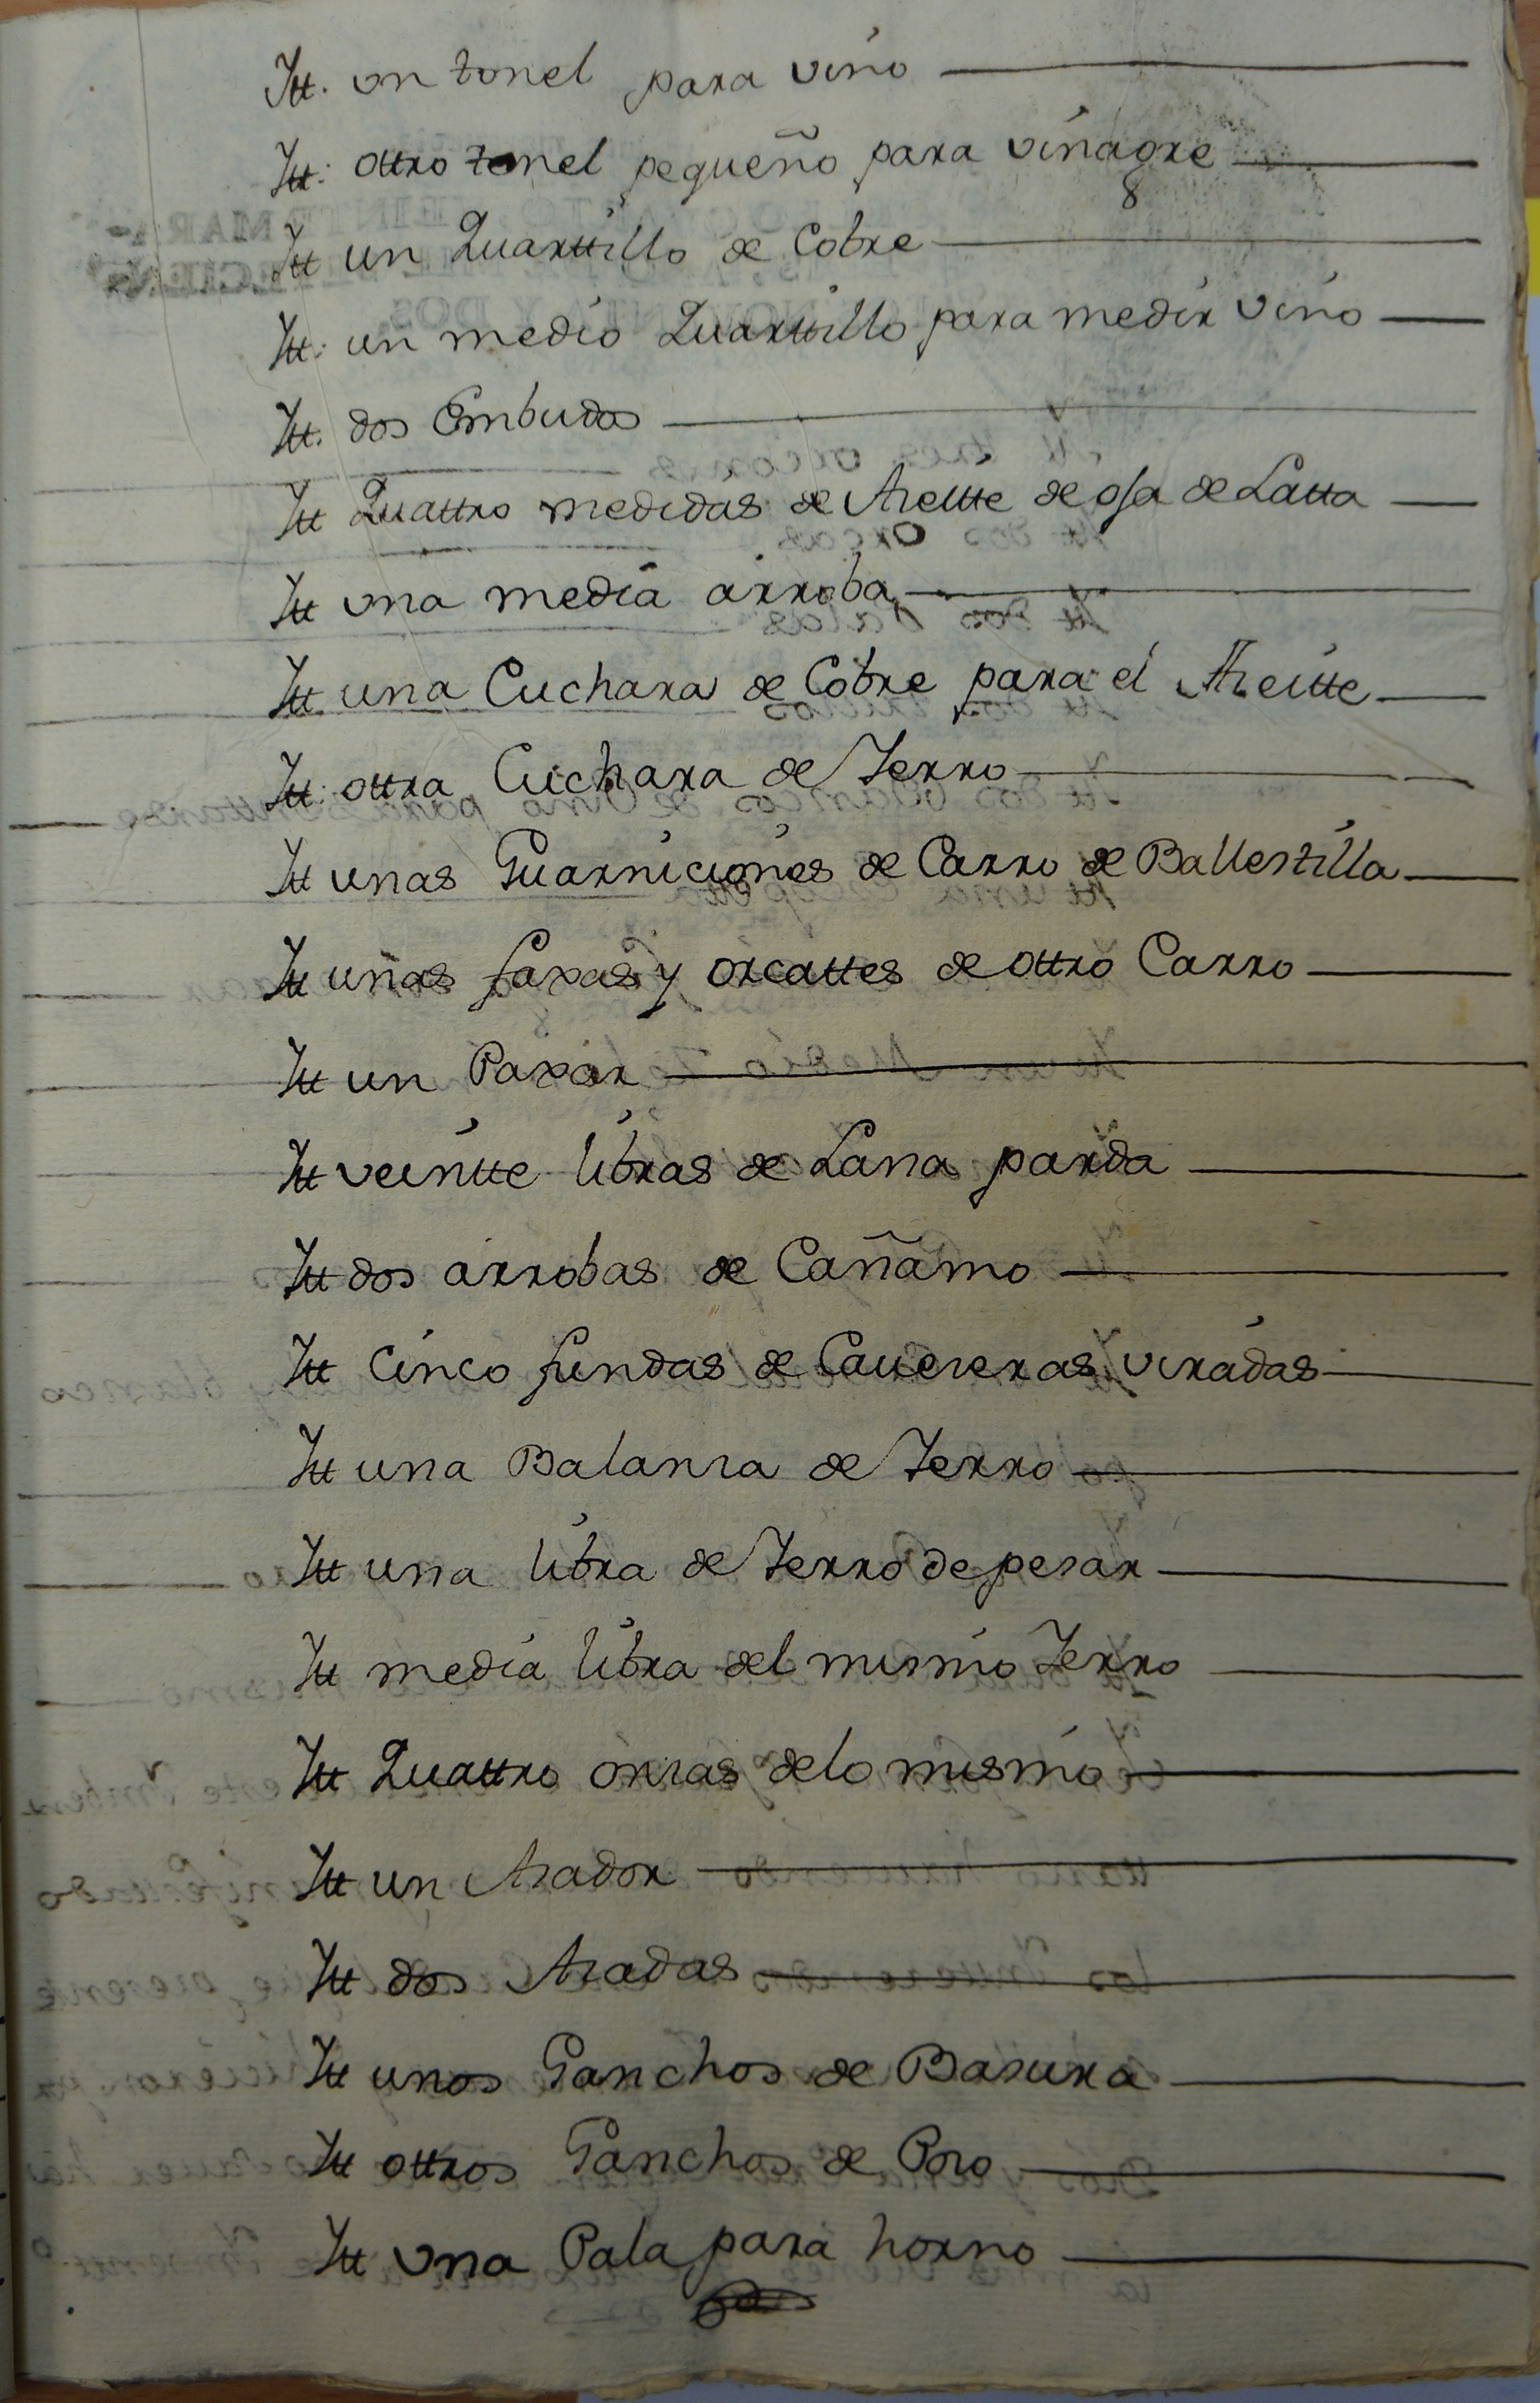 Itt. vn tonel para vino
Itt. ottro tonel pequeño para vinagre
Itt un Quarttillo de Cobre
Itt. un medio Quarttillo para medir vino
Itt. dos Embudos
Itt Quattro medidas de Azeitte de oja de Latta
Itt vna media arroba
Itt una Cuchara de Cobre para el Azeitte
Itt. ottra Cuchara de Ferro
Itt unas Guarniciones de Carro de Ballestilla
Itt unas faxas y orcattes de ottro Carro
Itt un Paxar
Itt veintte libras de Lana parda
Itt dos arrobas de Cañamo
Itt Cinco fundas de Cauezeras viradas
Itt una Balanza de Ferro
Itt una libra de Ferro de pesar
Itt media libra del mismo Ferro
Itt Quattro onzas delo mismo
Itt un Azador
Itt dos Azadas
Itt unos Ganchos de Basura
Itt ottros Ganchos de Pozo
Itt vna Pala para horno